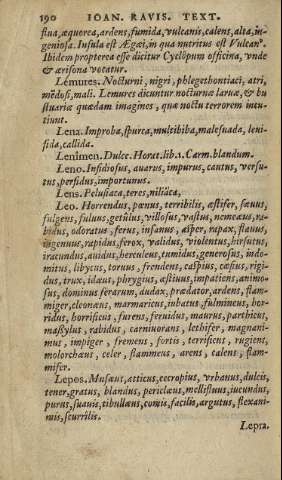 190 IOAN. RAVIS. TEXT.
stua, æquorea, ardens, fumida, vulcanis, calens, alta, in-
geniosa. Insula est Ægæi, in qua nutritus est Vulcan⁹.
Ibidem propterea esse dicitur Cyclôpum officina, vnde
& ærisona vocatur.
Lémures. Nocturni, nigri, phlegethontiaci, atri,
mẽdosi, mali. Lemures dicuntur nocturnæ laruæ, & bu
stuariæ quædam imagines, quæ noctu terrorem incu-
tiunt.
Lena. Improba, spurca, multibiba, malesuada, leui-
sida, callida.
Lenîmen. Dulce. Horat. lib. 1. Carm. blandum.
Leno. Insidiosus, auarus, impurus, cautus, versu-
tus, perfidus, importunus.
Lens. Pelusiaca, teres, niliaca.
Leo. Horrendus, pœnus, terribilis, æstifer, sæuus,
fulgens, fuluus, getûlus, villosus, vastus, nemeæus, ra-
bidus, odoratus, ferus, insanus, asper, rapax, flauus,
ingenuus, rapidus, ferox, validus, violentus, hirsutus,
iracundus, auidus, herculeus, tumidus, generosus, indo-
mitus, libycus, toruus, frendens, caspius, cæsius, rigi-
dus, trux, idæus, phrygius, æstiuus, impatiens, animo-
sus, dominus ferarum, audax, prædator, ardens, flam-
miger, cleonæus, marmaricus, iubatus, fulmineus, hor-
ridus, horrificus, furens, feruidus, maurus, parthicus,
massylus, rabidus, carniuorans, lethifer, magnani-
mus, impiger, fremens, fortis, terrificus, rugiens,
molorchæus, celer, flammeus, arens, calens, flam-
mifer.
Lepos. Musæus, atticus, cecropius, vrbanus, dulcis,
tener, gratus, blandus, pericleus, mellifluus, iucundus,
purus, suauis, tibullæus, comis, facilis, argutus, flexani-
mis, scurrilis.
Lepra.